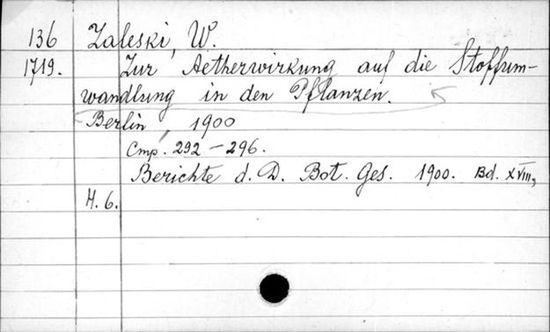 136 Zaleski, W.
1719. Zur Aetherwirkung auf die Stoffum-
wandlung in den Pflanzen.
Berlin, 1900
Cmp. 292-296.
Berichte d. D. Bot. Ges. 1900. Bd. XVIII,
H. 6.